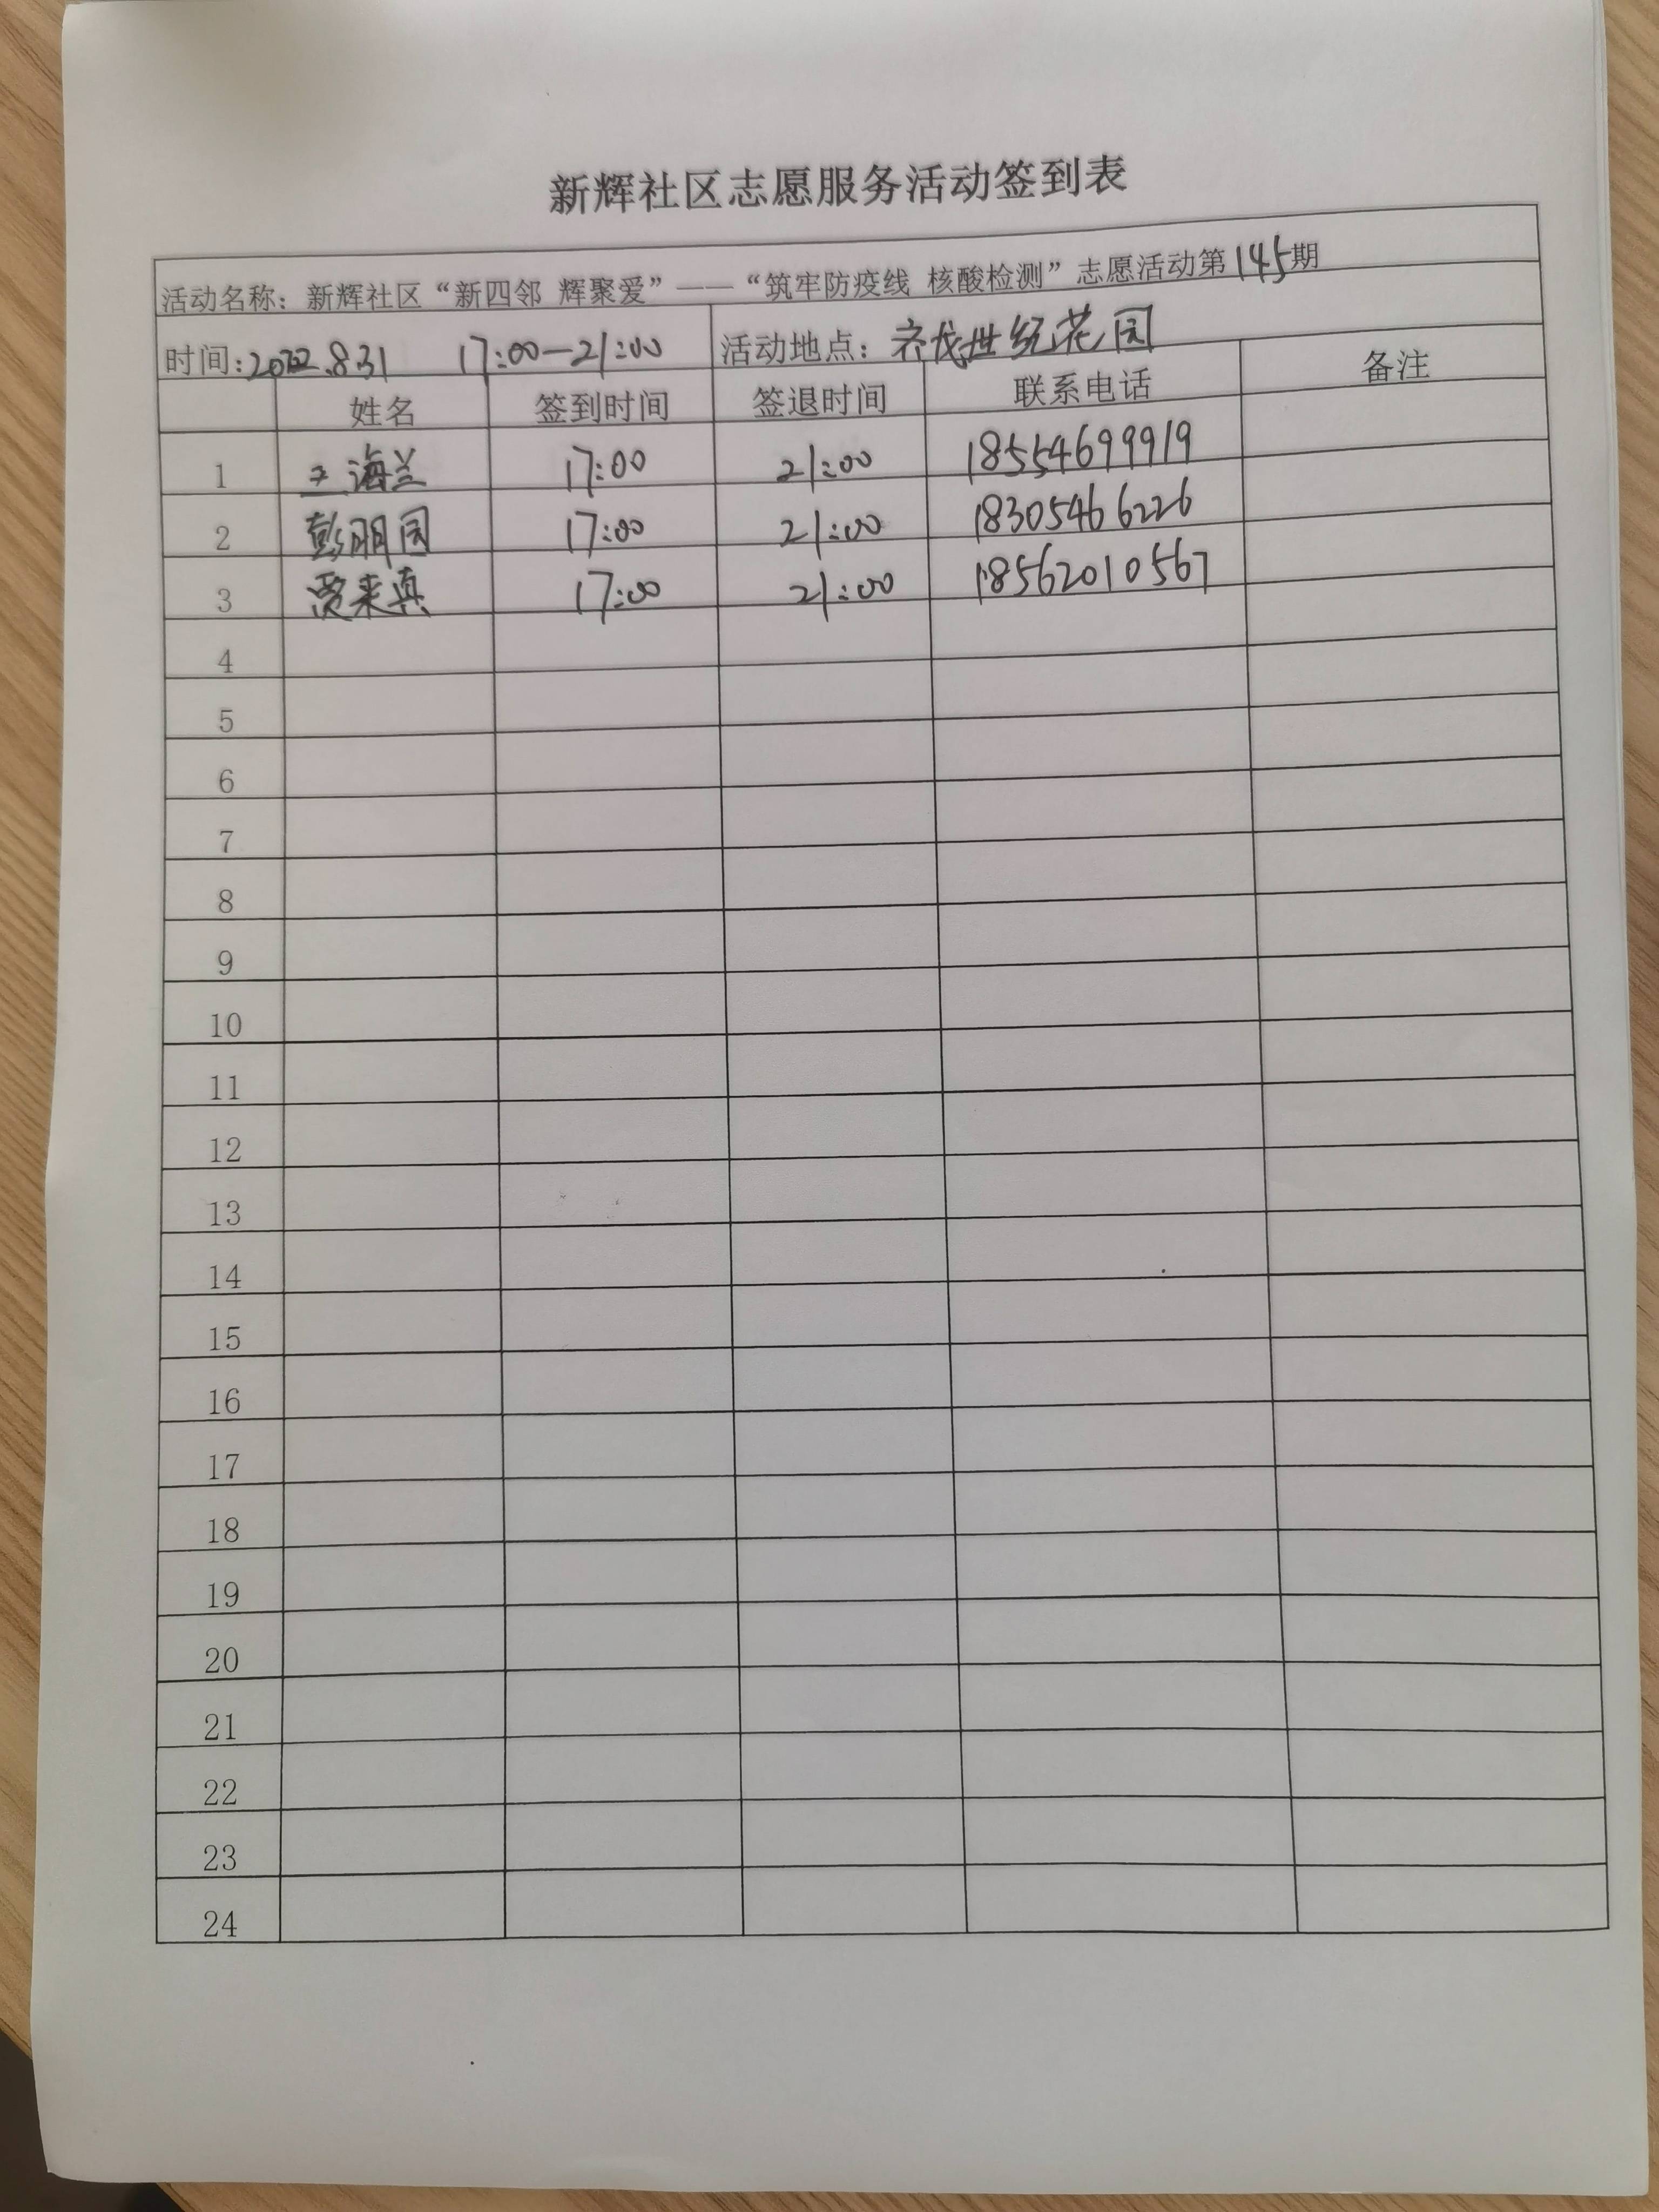 新辉社区志愿服务活动签到表
活动名称：新辉社区“新四邻 辉聚爱”——“筑牢防疫线 核酸检测”志愿活动第145期
时间:2022.8.31 17:00—21:00 活动地点：世纪花园
姓名 签到时间 签退时间 联系电话 备注
1 王海兰 17:00 21:00 18554699919
2 彭丽园 17:00 21:00 18305466226
3 贾来真 17:00 21:00 18562010567
4
5
6
7
8
9
10
11
12
13
14
15
16
17
18
19
20
21
22
23
24